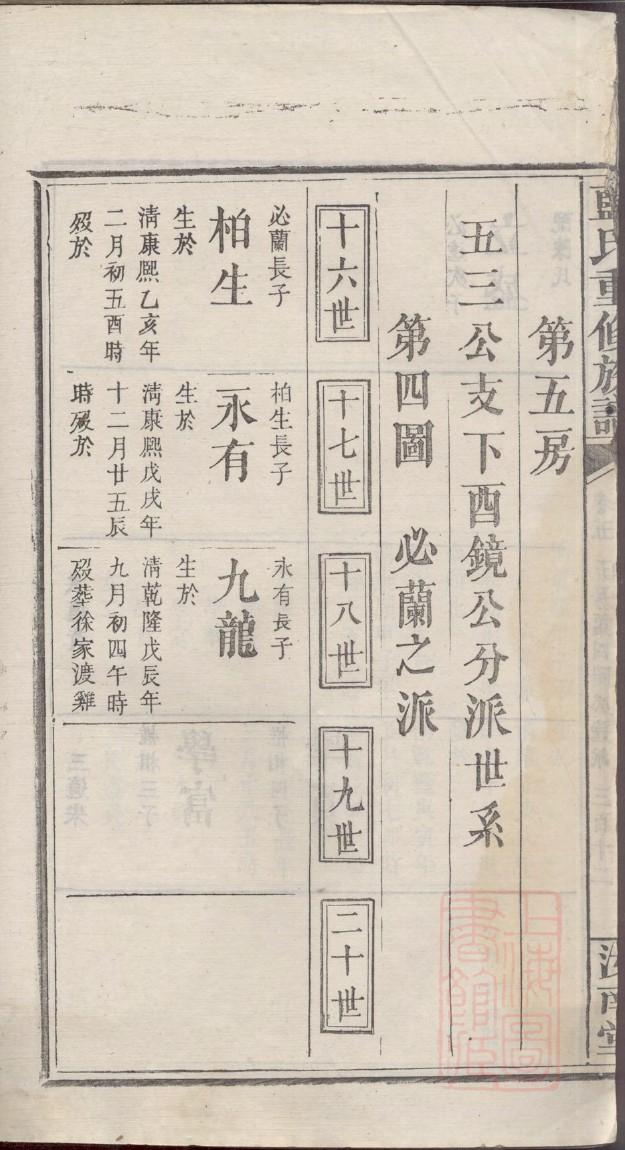 藍氏重修族譜
汝南堂
第五房
五三公支下酉鏡公分派世系
第四圖　必蘭之派
十六世
十七世
十八世
十九世
二十世
必蘭長子
柏生
生於
清康熙乙亥年
二月初五酉時
歿於
柏生長子
永有
生於
清康熙戊戌年
十二月廿五辰
時歿於
永有長子
九龍
生於
清乾隆戊辰年
九月初四午時
歿葬徐家渡雞
上海圖
書館藏